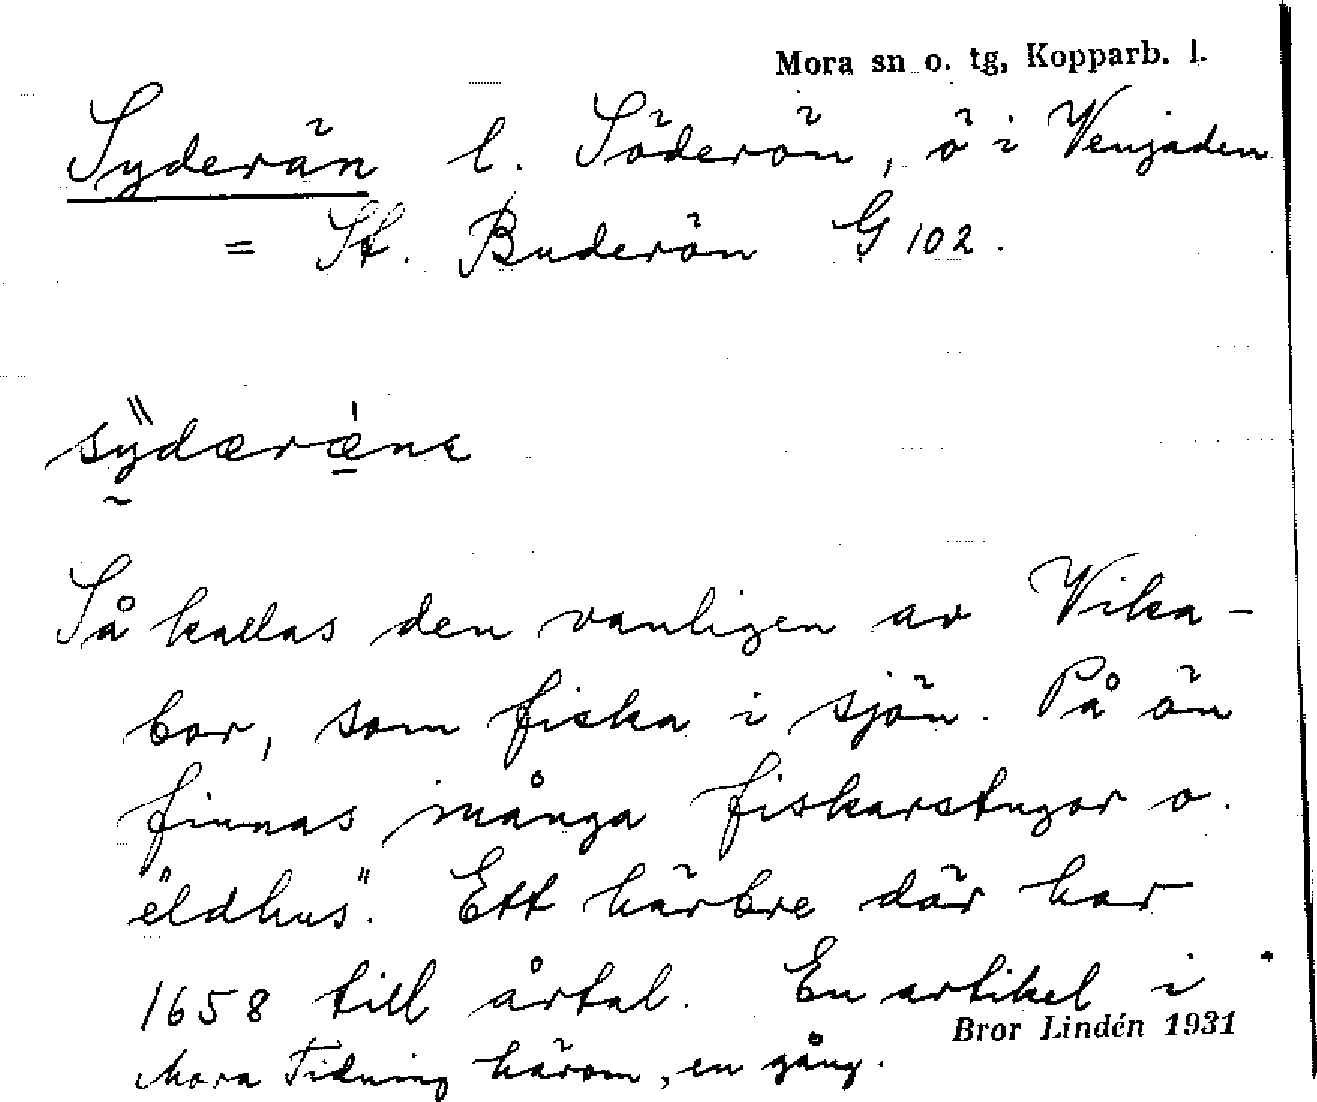 Mora sn o. tg, Kopparb. l.
Syderän l. Söderön, ö i Venjaden
= St. Buderön G 102.
sÿdæræ̀ne
Så kallas den vanligen av Vika-
bor, som fiska i sjön. På ön
finnas många fiskarstugor o.
"eldhus". Ett härbre där har
1658 till årtal. En artikel i
Bror Lindén 1931
Mora Tidning härom, en gång.